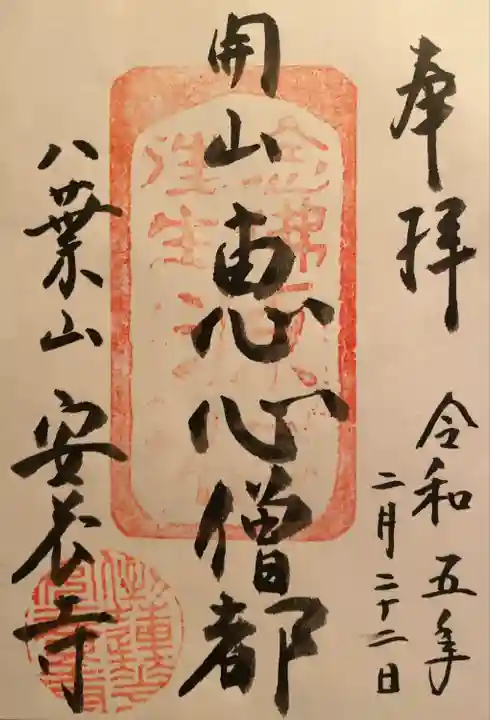 奉拝
令和五年
二月二十二日
開山 恵心僧都
念佛
往生
八葉山 安養寺